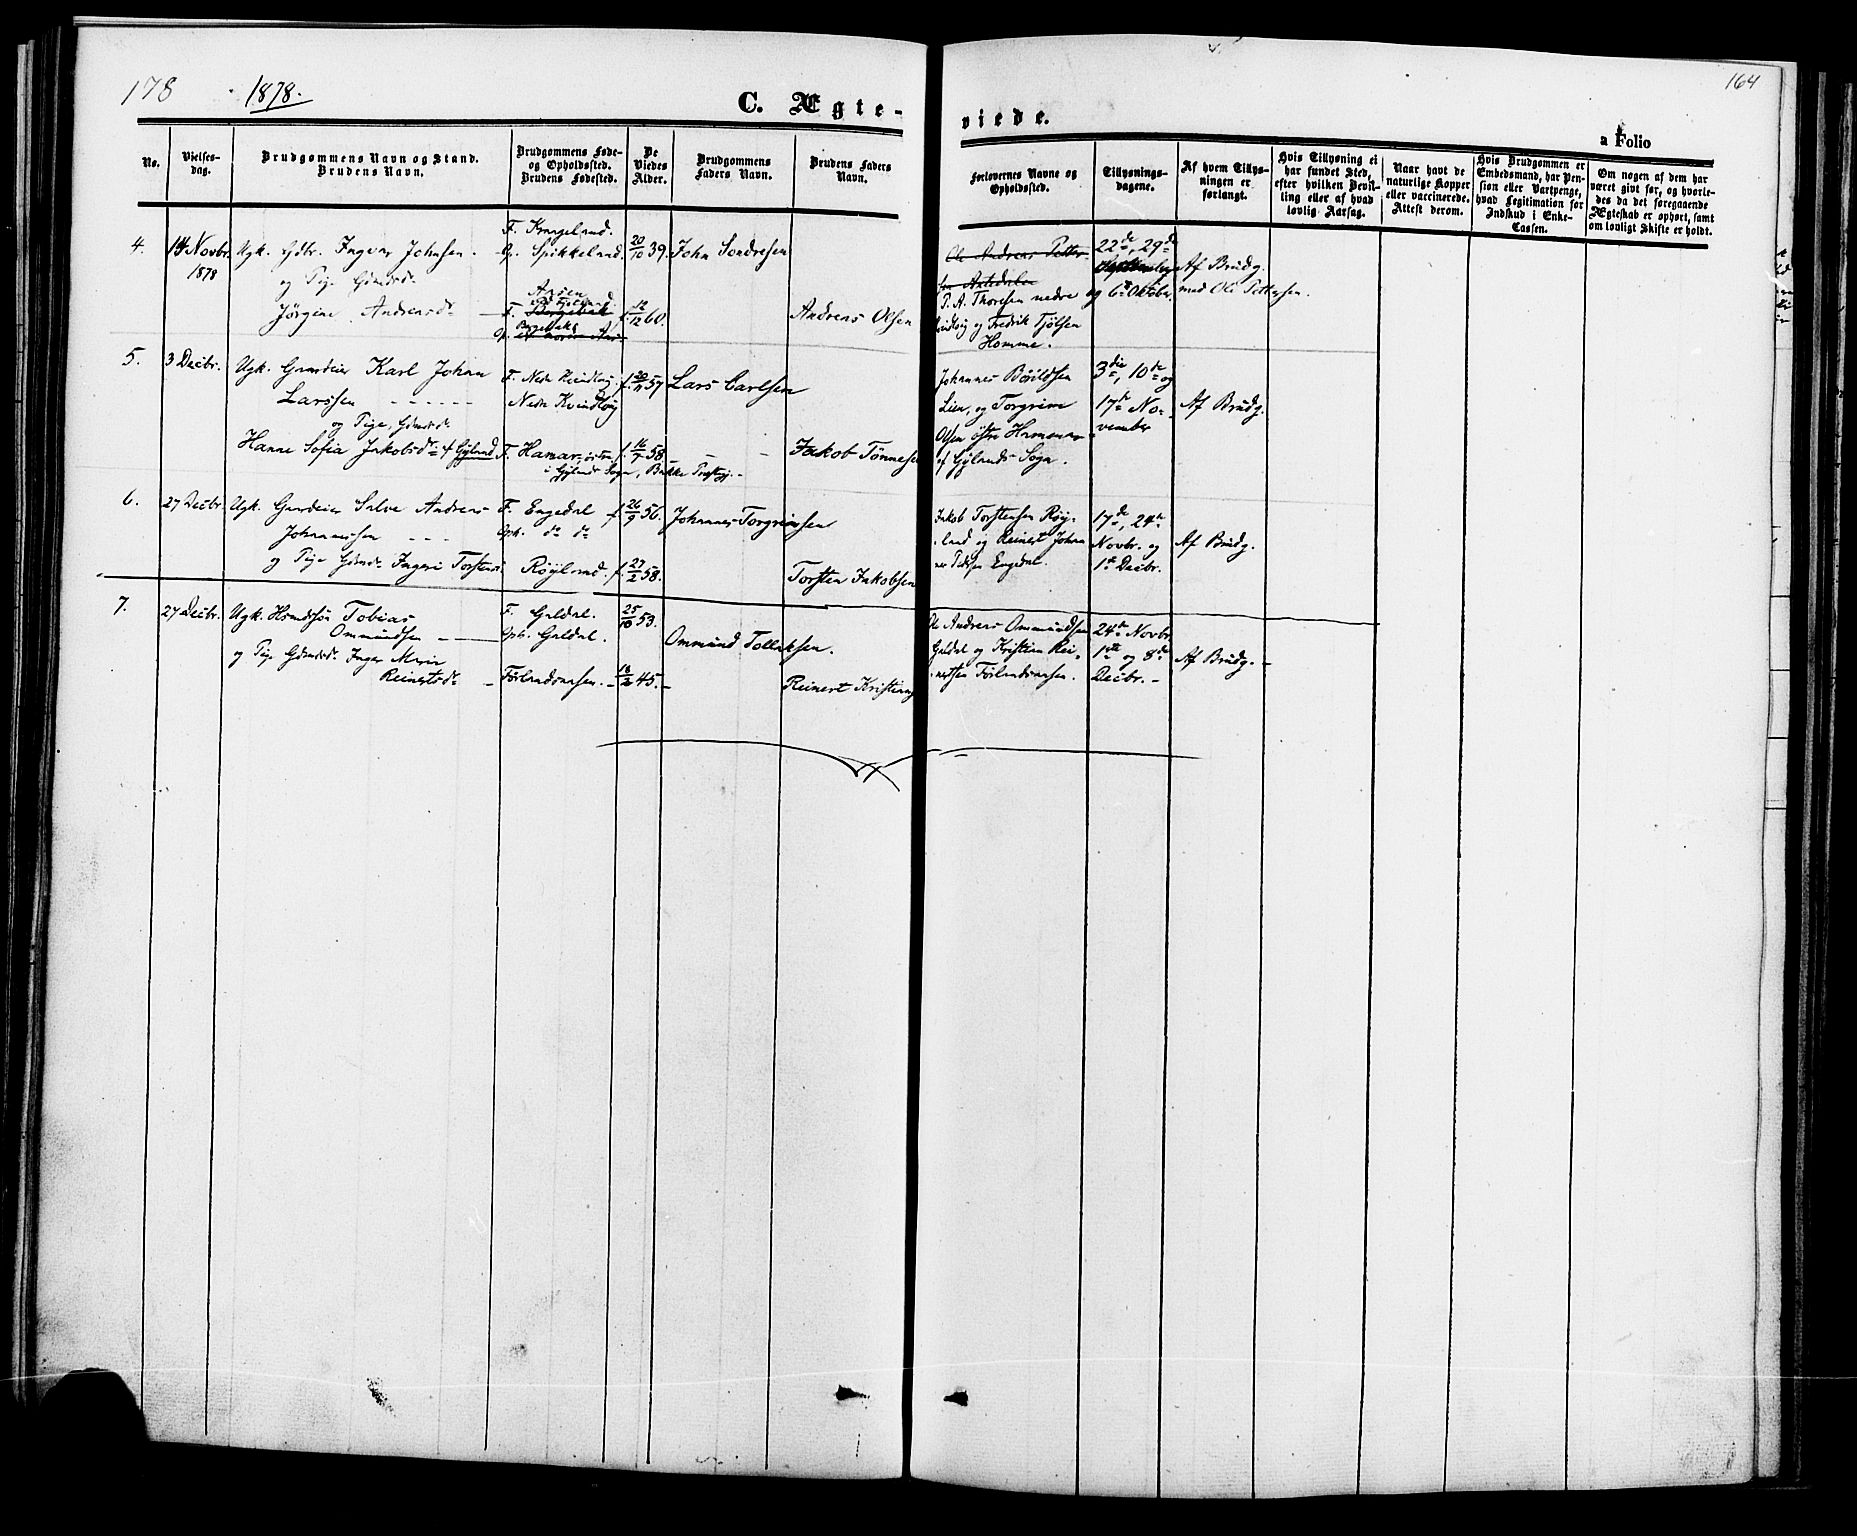 178 1878.
164
C. Ægte-
viede.
a Folio
No.
Vielses-
dag.
Brudgommens Navn og Stand.
Brudens Navn.
Brudgommens Føde-
og Opholdssted.
Brudens Fødested.
De
Viedes
Alder.
Brudgommens
Faders Navn.
Brudens Faders
Navn.
Forlovernes Navne og
Opholdssted.
Tillysnings-
dagene.
Af hvem Tillys-
ningen er
forlangt.
Hvis Tillysning ei
har fundet Sted,
efter hvilken Bevil-
ling eller af hvad
lovlig Aarsag.
Naar havt de
naturlige Kopper
eller vaccinerede.
Attest derom.
Hvis Brudgommen er
Embedsmand, har Pen-
sion eller Vartpenge,
hvad Legitimation for
Indskud i Enke-
Cassen.
Om nogen af dem har
været givt før, og hvorle-
des da det foregaaende
Ægteskab er ophørt, samt
om lovligt Skifte er holdt.
4.
14 Novbr.
1878
Ugk. Gdbr. Ingvar Johnsen.
og Pige Gdmdsd.
Jørgine Andreasd.
F. Krageland.
Op. Spikkeland.
F. Bergebæk
20/10 39.
f. 12/12 60.
John Sondresen
Andreas Olsen
Ole Andreas Petter-
sen
T. A. Thoresen nedre
Kvidlog og Fredrik Tjølsen
Homme.
22de, 29de
og 6te Oktober
Af Brudg.
med Ole Pettersen.
5.
3 Decbr.
Ugk. Gaardeier Karl Johan
Larssen
og Pige, Gdmdsd.
Hanne Sofia Jakobsdr. af Gyland
F. Nedre Kvindlog
Nedre Kvindlog
F. Hamar, østre,
i Gylands Sogn, Bakke Prstgj.
f. 20/11 57
f. 16/7 58
Lars Carlsen
Jakob Tønnesen
Johannes Børildsen
Lien, og Torgrim
Olsen østre Hamar
af Gylands Sogn.
3die, 10de og
17de No-
vember
Af Brudg.
6.
27 Decbr.
Ugk. Gaardeier Salve Andreas
Johannessen
og Pige Gdmdsd. Ingeri Torstensd.
F. Engedal
Oph. do do
Røyland.
f. 26/9 56.
f. 27/2 58.
Johannes Torgrimsen
Torsten Jakobsen
Jakob Torstensen Røy-
land og Reinert Johan
nes Pedersen Engedal.
17de, 24de
Novbr. og
1ste Decbr.
Af Brudg.
7.
27 Decbr.
Ugk. Hsmdssøn Tobias
Ommundsen
og Pige Gdmdsd. Inger Marie
Reinertsd.
F. Galdal.
Oph. Galdal.
Førlandsaasen.
25/10 53.
18/2 45.
Ommund Tollaksen.
Reinert Kristians
Ole Andreas Ommundsen
Galdal og Kristian Rei-
nertsen Førlandsaasen.
24de Novbr.
1ste og 8de
Decbr.
Af Brudg.